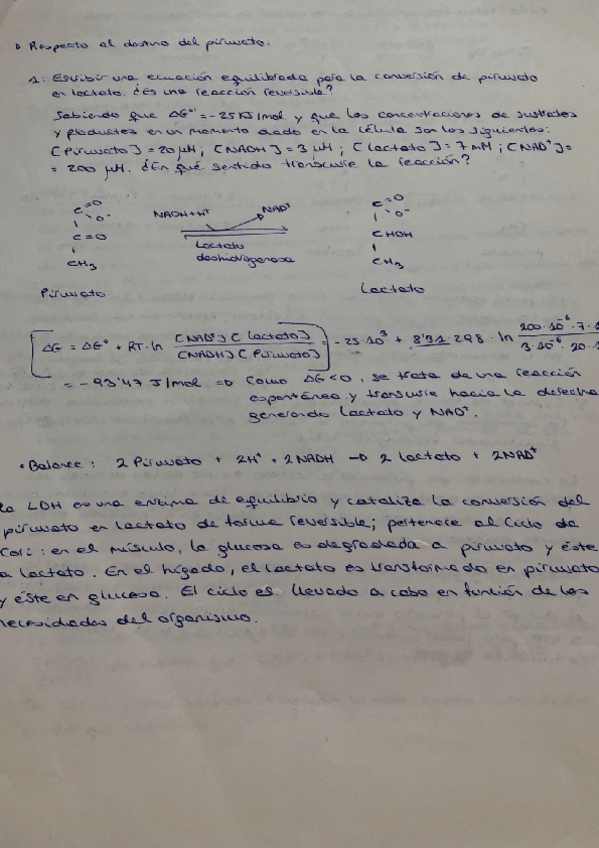 Respecto al destino del piruvato.
1. Escribir una ecuación equilibrada para la conversión de piruvato
en lactato. ¿Es una reacción reversible?
Sabiendo que ΔG°' = -25 KJ/mol y que las concentraciones de sustratos
y productos en un momento dado en la célula son los siguientes:
[Piruvato] = 20 μM; [NADH] = 3 μM; [lactato] = 7 mM; [NAD⁺] =
= 200 μM. ¿En qué sentido transcurre la reacción?
C=O O⁻ NADH+H⁺ NAD⁺ C=O O⁻
C=O Lactato CHOH
CH₃ deshidrogenasa CH₃
Piruvato Lactato
ΔG = ΔG° + RT·ln [NAD⁺][lactato] / [NADH][Piruvato] = -25·10³ + 8'31·298·ln 200·10⁻⁶·7·1 / 3·10⁻⁶·20·1
= -93'47 J/mol ⇒ Como ΔG<0, se trata de una reacción
espontánea y transcurre hacia la derecha
generando lactato y NAD⁺.
• Balance: 2 Piruvato + 2H⁺ + 2NADH → 2 lactato + 2NAD⁺
la LDH es una enzima de equilibrio y cataliza la conversión del
piruvato en lactato de forma reversible; pertenece al Ciclo de
Cori: en el músculo, la glucosa es degradada a piruvato y éste
a lactato. En el hígado, el lactato es transformado en piruvato
y éste en glucosa. El ciclo es llevado a cabo en función de las
necesidades del organismo.